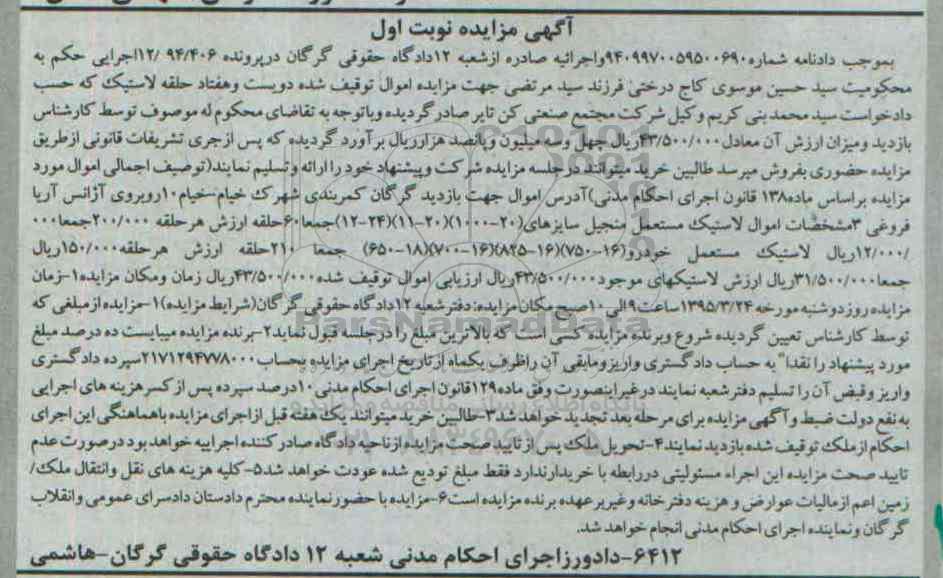 آگهی مزایده نوبت اول
بموجب دادنامه شماره۹۴۰۹۹۷۰۰۵۹۵۰۰۶۹۰واجرائیه صادره ازشعبه ۱۲دادگاه حقوقی گرگان درپرونده ۹۴/۴۰۶ /۱۲اجرایی حکم به
محکومیت سید حسین موسوی کاج درختی فرزند سید مرتضی جهت مزایده اموال توقیف شده دویست وهفتاد حلقه لاستیک که حسب
دادخواست سید محمد بنی کریم وکیل شرکت مجتمع صنعتی کن تایر صادر گردیده وباتوجه به تقاضای محکوم له موصوف توسط کارشناس
بازدید ومیزان ارزش آن معادل۴۳/۵۰۰/۰۰۰ریال چهل وسه میلیون وپانصد هزارریال برآورد گردیده که پس ازجری تشریفات قانونی ازطریق
مزایده حضوری بفروش میرسد طالبین خرید میتوانند درجلسه مزایده شرکت وپیشنهاد خود را ارائه وتسلیم نمایند(توصیف اجمالی اموال مورد
مزایده براساس ماده۱۳۸ قانون اجرای احکام مدنی)آدرس اموال جهت بازدید گرگان کمربندی شهرک خیام-خیام۱۰روبروی آژانس آریا
فروغی ۳مشخصات اموال لاستیک مستعمل منجیل سایزهای(۲۰-۱۰۰۰)(۲۰-۱۱)(۲۴-۱۲)جمعا۶۰حلقه ارزش هرحلقه ۲۰۰/۰۰۰جمعا۰۰۰
/۱۲/۰۰۰ریال لاستیک مستعمل خودرو(۱۶-۷۵۰)(۱۶-۸۲۵)(۱۶-۷۰۰)(۱۸-۶۵۰) جمعا ۲۱۰حلقه ارزش هرحلقه۱۵۰/۰۰۰ریال
جمعا۳۱/۵۰۰/۰۰۰ریال ارزش لاستیکهای موجود۴۳/۵۰۰/۰۰۰ریال ارزیابی اموال توقیف شده۴۳/۵۰۰/۰۰۰ریال زمان ومکان مزایده۱-زمان
مزایده روزدوشنبه مورخه ۱۳۹۵/۳/۲۴ساعت۹الی۱۰صبح مکان مزایده:دفترشعبه ۱۲دادگاه حقوقی گرگان(شرایط مزایده)۱-مزایده ازمبلغی که
توسط کارشناس تعیین گردیده شروع وبرنده مزایده کسی است که بالاترین مبلغ را درجلسه قبول نماید۲-برنده مزایده میبایست ده درصد مبلغ
مورد پیشنهاد را نقدا" به حساب دادگستری واریز ومابقی آن راظرف یکماه ازتاریخ اجرای مزایده بحساب۲۱۷۱۲۹۴۷۷۸۰۰۰سپرده دادگستری
واریز وفیض آن را تسلیم دفترشعبه نمایند درغیراینصورت وفق ماده۱۲۹قانون اجرای احکام مدنی۱۰درصد سپرده پس از کسرهزینه های اجرایی
به نفع دولت ضبط و آگهی مزایده برای مرحله بعد تجدید خواهد شد۳-طالبین خرید میتوانند یک هفته قبل ازاجرای مزایده باهماهنگی این اجرای
احکام ازملک توقیف شده بازدید نمایند۴-تحویل ملک پس از تایید صحت مزایده ازناحیه دادگاه صادر کننده اجراییه خواهد بود درصورت عدم
تایید صحت مزایده این اجراء مسئولیتی دررابطه با خریدارندارد فقط مبلغ تودیع شده عودت خواهد شد۵-کلیه هزینه های نقل وانتقال ملک/
زمین اعم ازمالیات عوارض و هزینه دفترخانه وغیربرعهده برنده مزایده است۶-مزایده با حضورنماینده محترم دادستان دادسرای عمومی وانقلاب
گرگان ونماینده اجرای احکام مدنی انجام خواهد شد.
۶۴۱۲-دادورزاجرای احکام مدنی شعبه ۱۲ دادگاه حقوقی گرگان-هاشمی
ParsNamadData